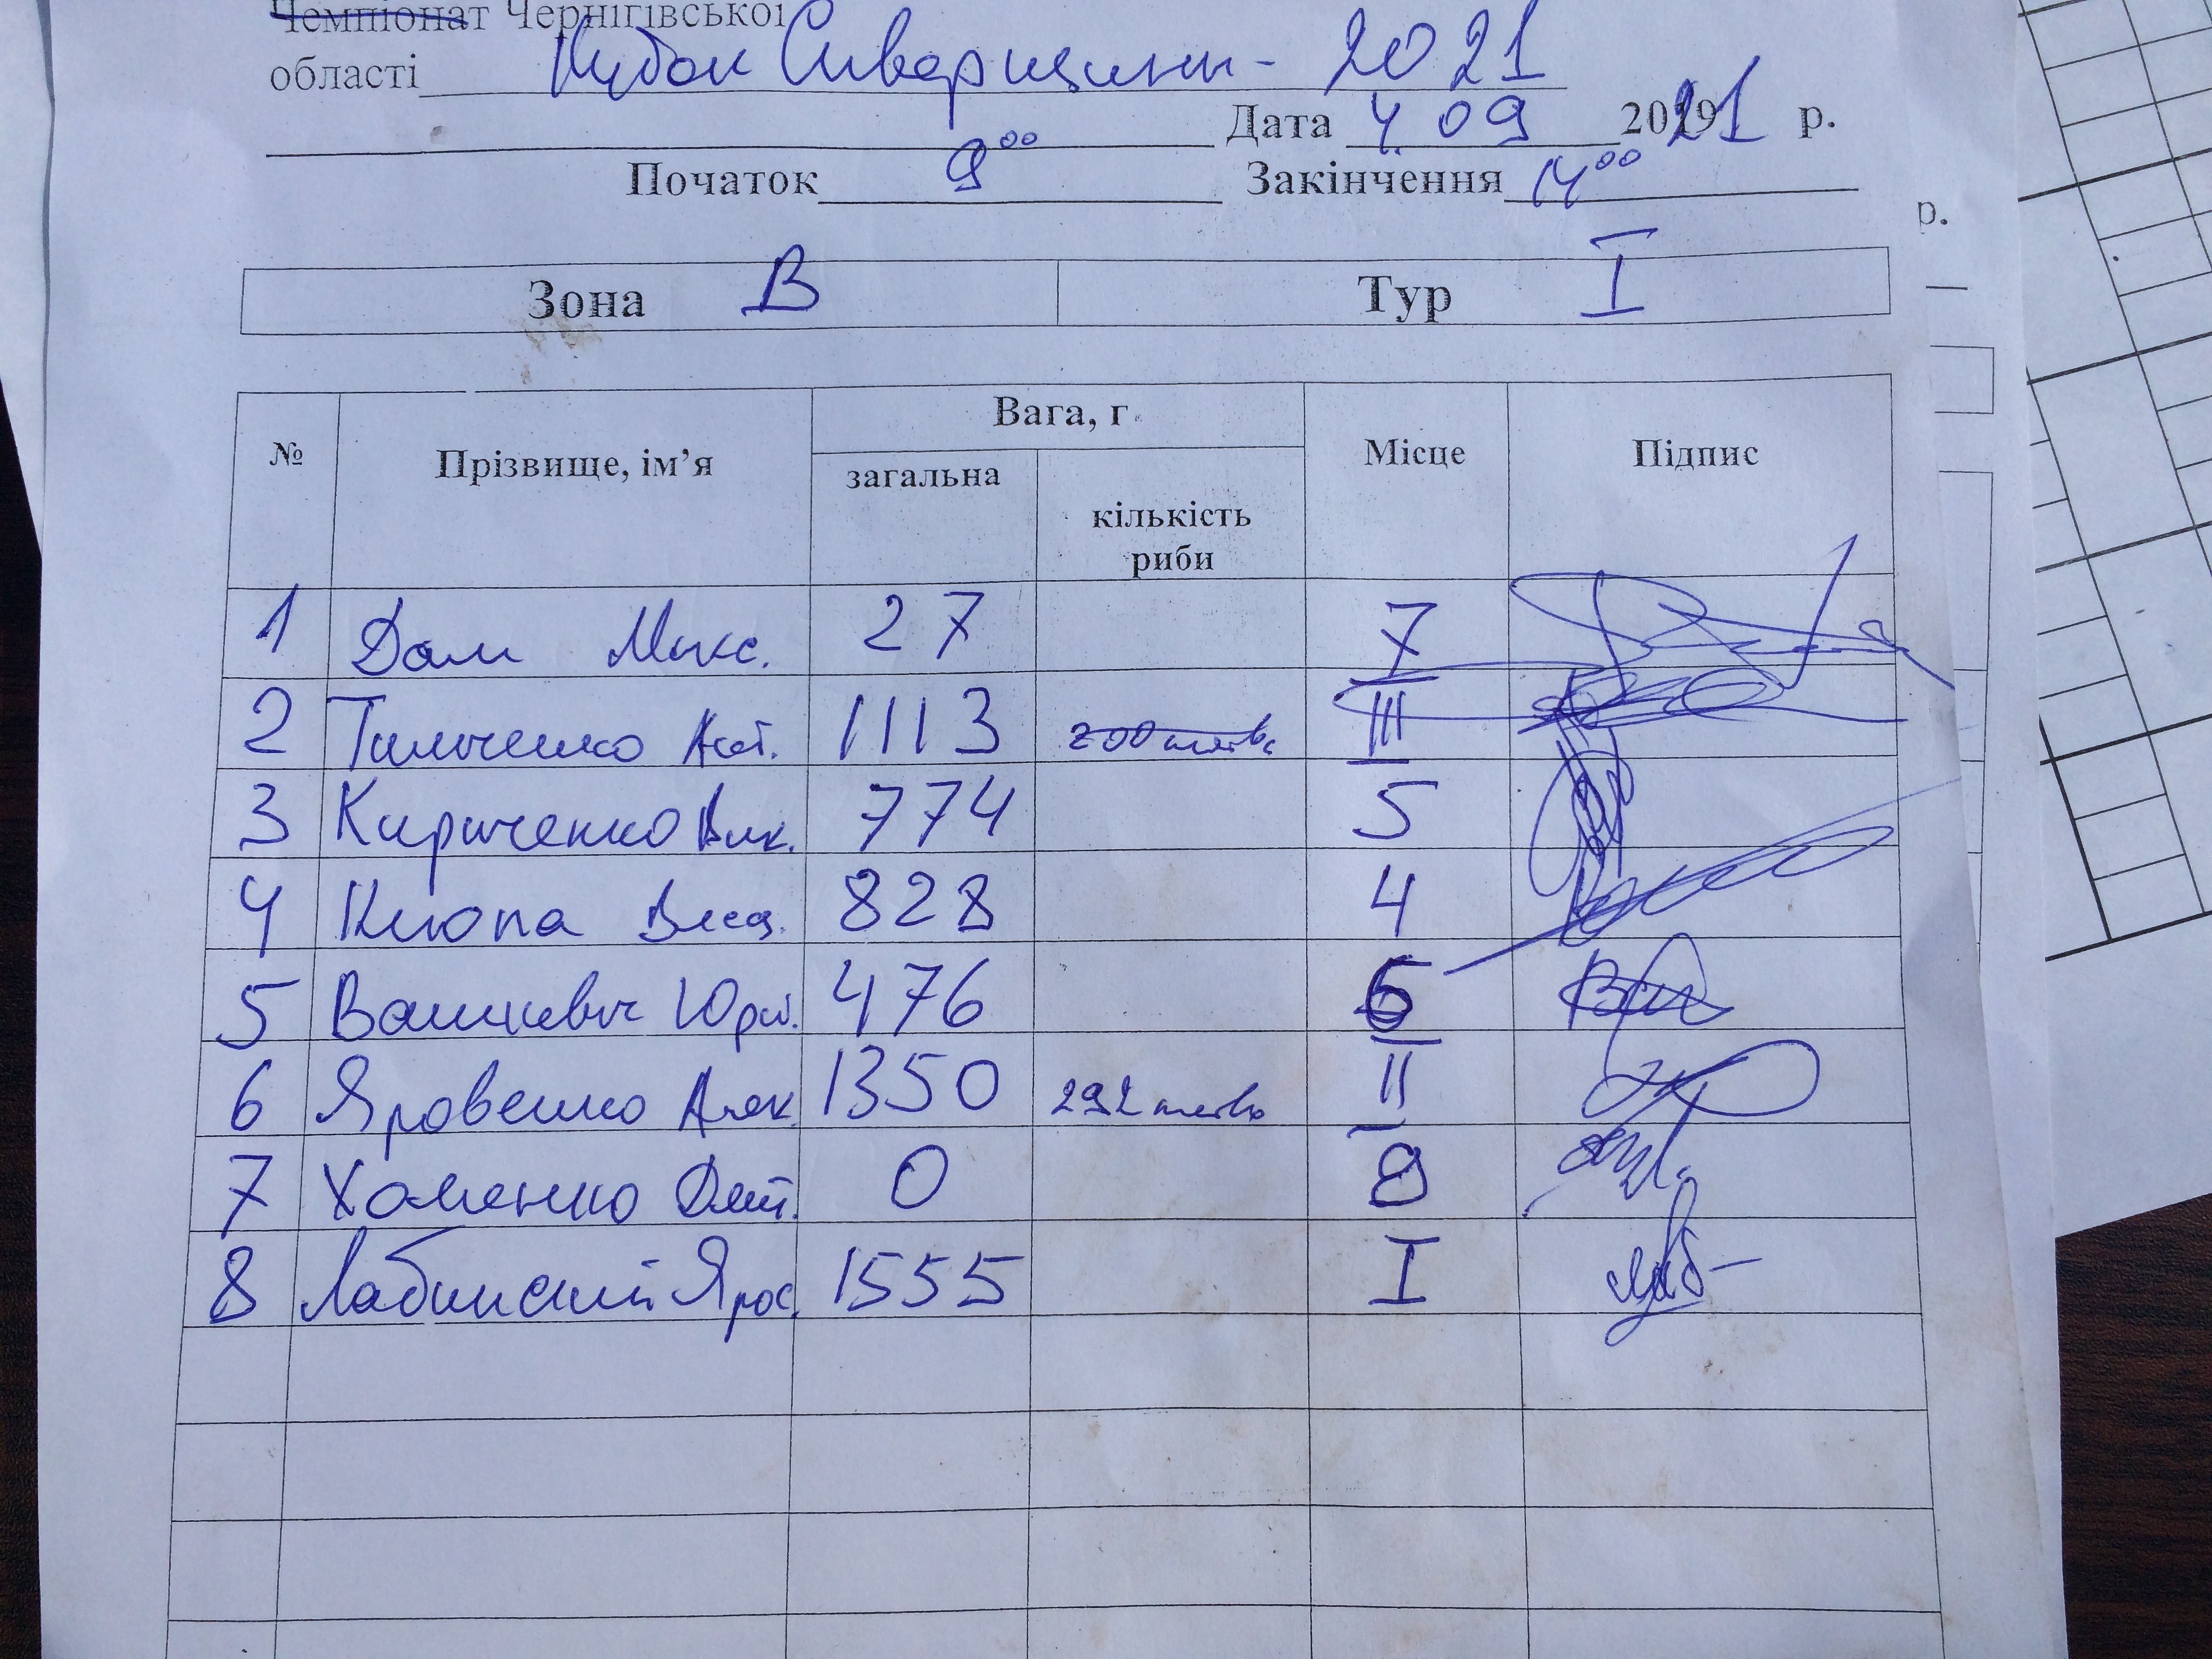 Чемпіонат Чернігівської
області Кубок Сиверщини - 2021
Дата 4.09 2021 р.
Початок 9⁰⁰ Закінчення 14⁰⁰
р.
Зона В Тур I
№ Прізвище, ім’я Вага, г Місце Підпис
загальна кількість риби
1 Дам Макс. 27 7
2 Тимченко Ант. 1113 III
3 Кириченко Вик. 774 5
4 Клюпа Влад. 828 4
5 Вашкевич Юрий. 476 6
6 Яровенко Алек. 1350 292 плотва II
7 Хоменко Дмит. 0 8
8 Лабинский Ярос. 1555 I